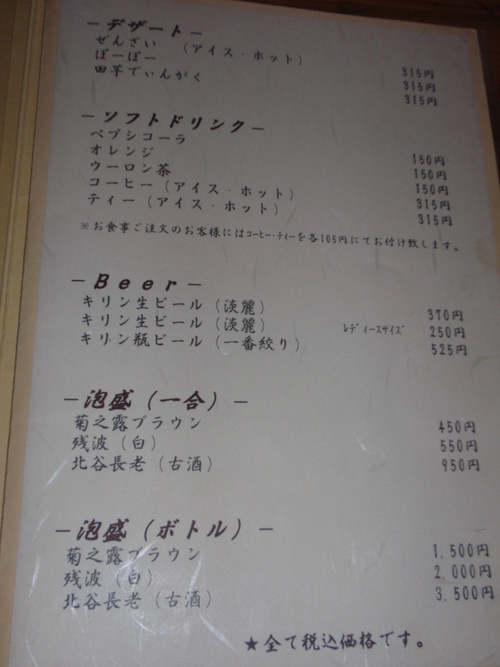 －デザート－
ぜんざい （アイス・ホット） 315円
ぽーぽー 315円
田芋でぃんがく 315円
－ソフトドリンク－
ペプシコーラ 150円
オレンジ 150円
ウーロン茶 150円
コーヒー（アイス・ホット） 315円
ティー（アイス・ホット） 315円
※お食事ご注文のお客様にはｺｰﾋｰ・ﾃｨｰを各105円にてお付け致します。
－Ｂｅｅｒ－
キリン生ビール（淡麗） 370円
キリン生ビール（淡麗） ﾚﾃﾞｨｰｽｻｲｽﾞ 250円
キリン瓶ビール（一番絞り） 525円
－泡盛（一合）－
菊之露ブラウン 450円
残波（白） 550円
北谷長老（古酒） 950円
－泡盛（ボトル）－
菊之露ブラウン 1,500円
残波（白） 2,000円
北谷長老（古酒） 3,500円
★全て税込価格です。